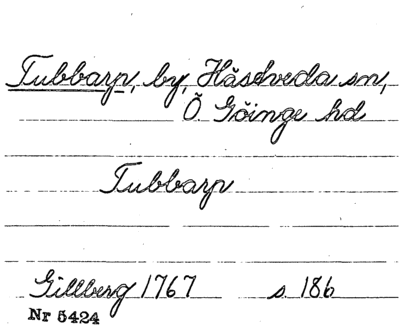 Tubbarp, by, Hästveda sn,
Ö. Göinge hd
Tubbarp
Gillberg 1767 s. 186
Nr 5424